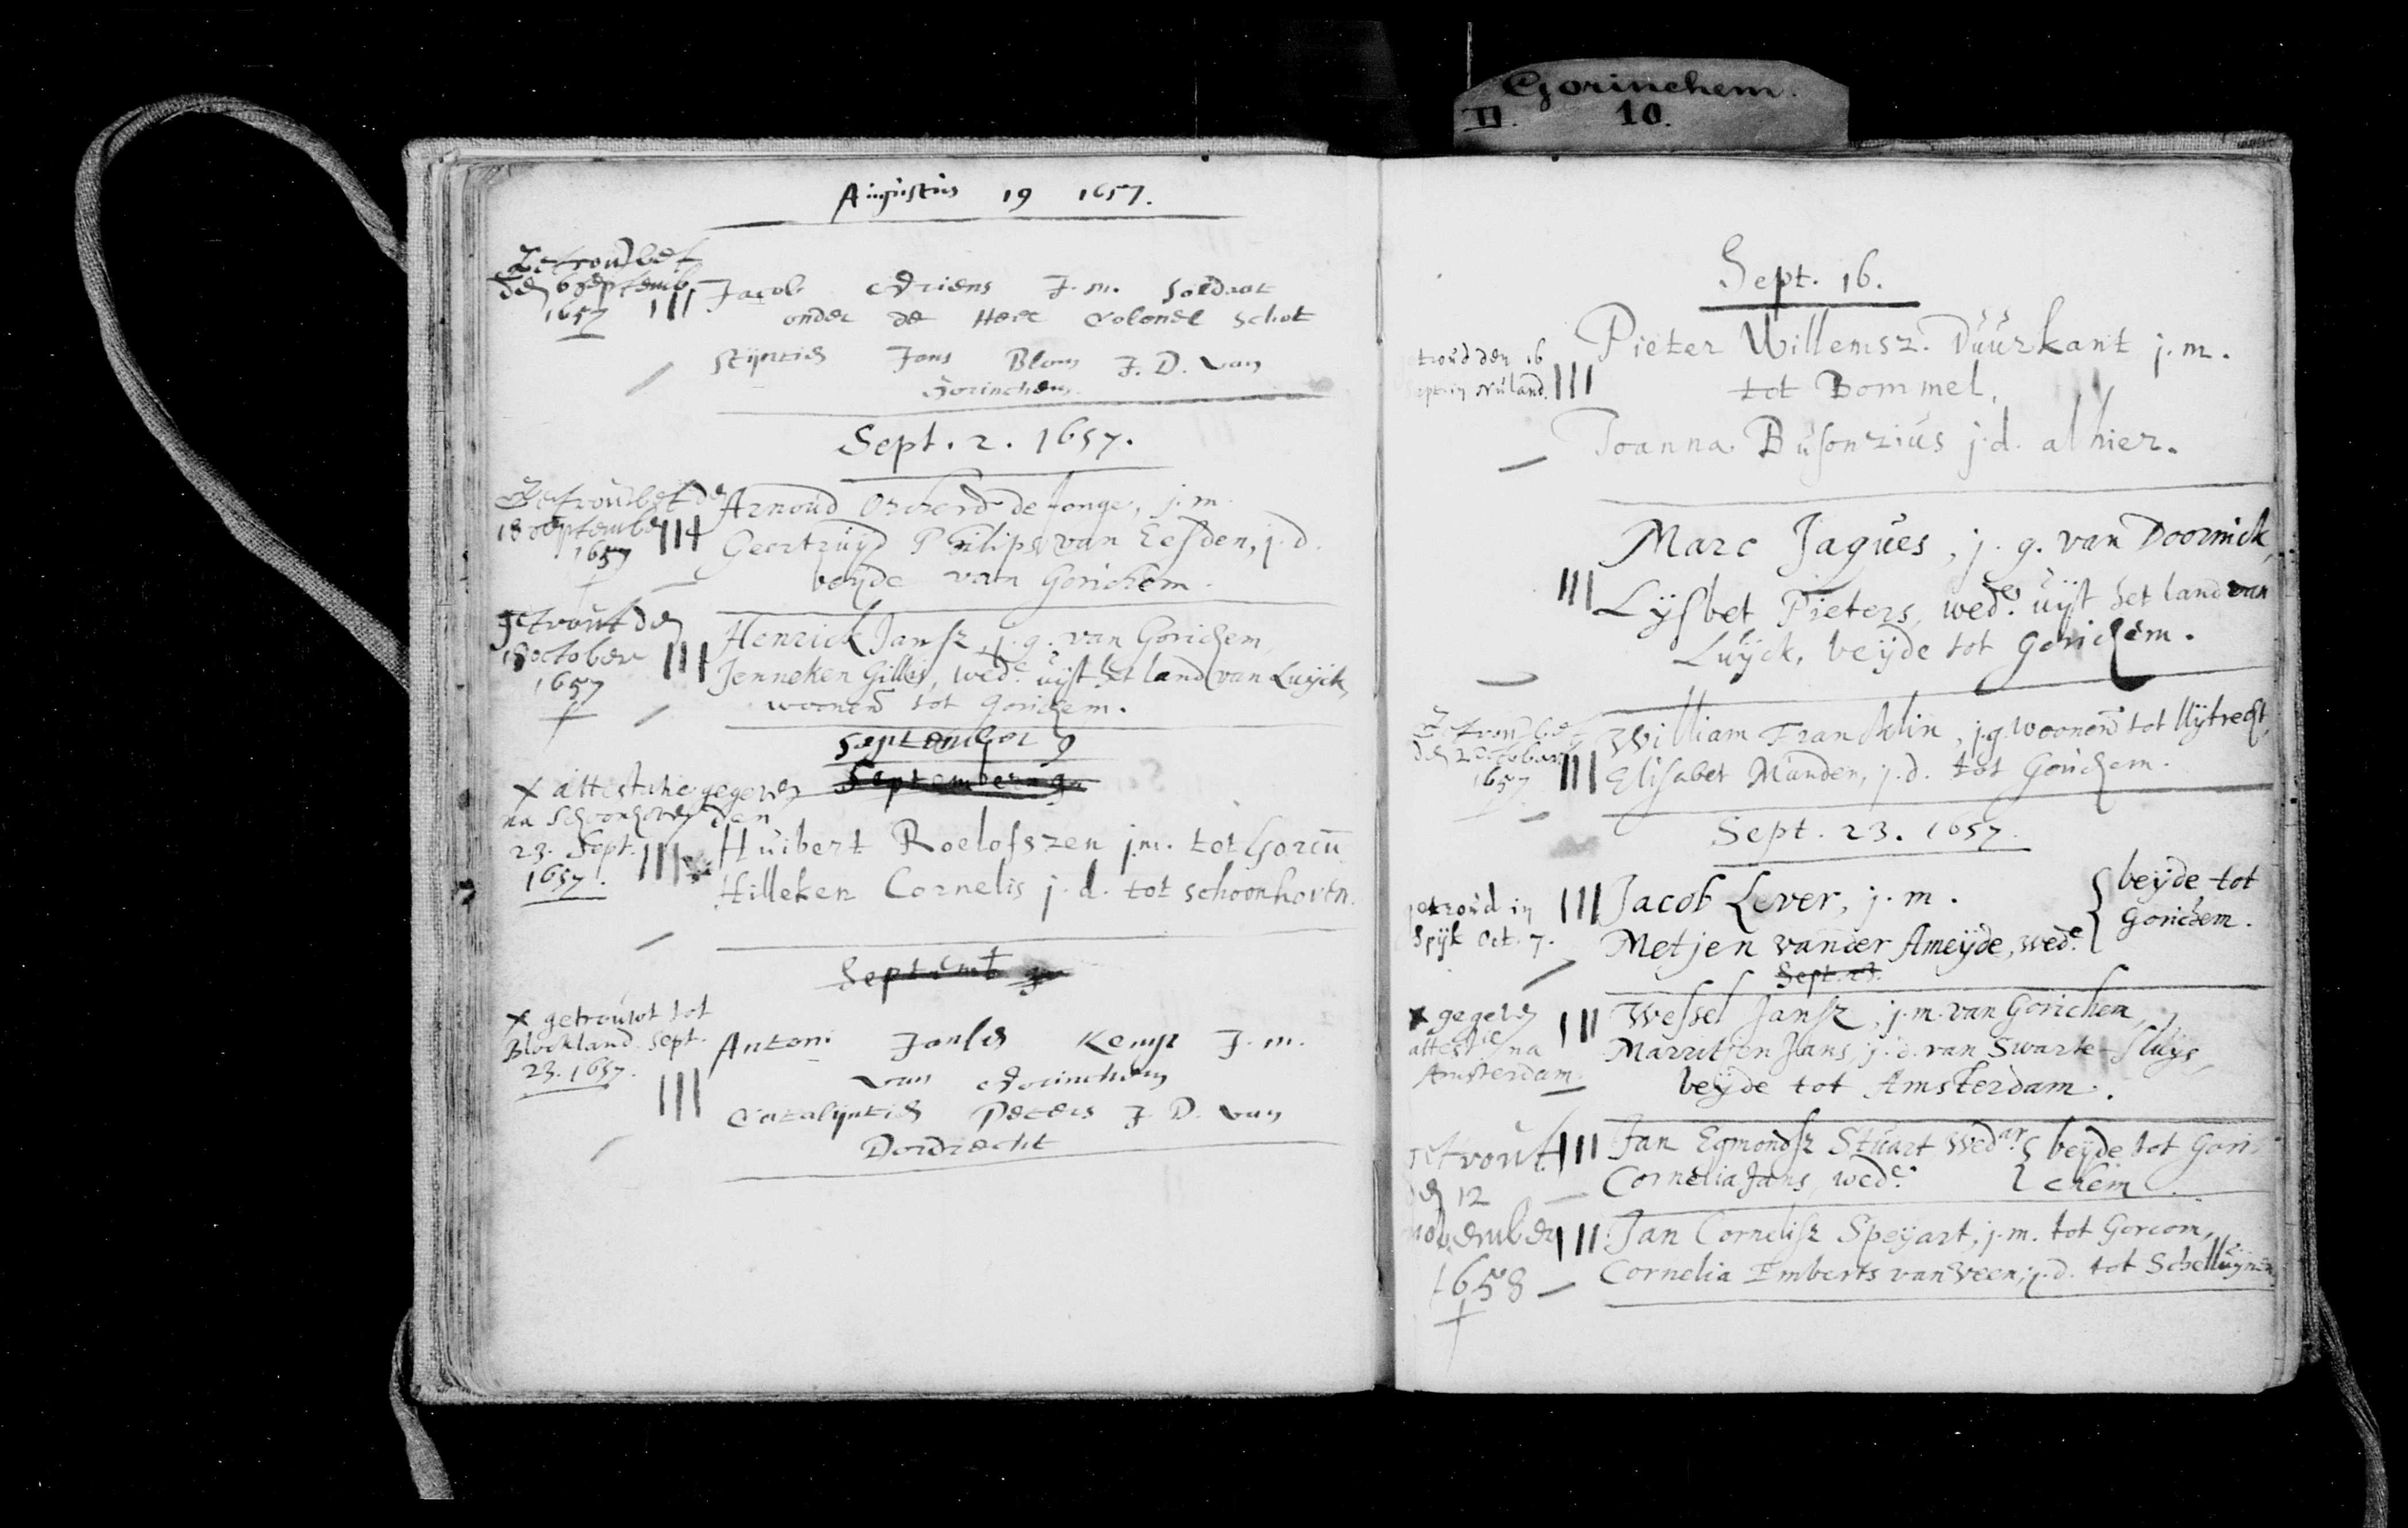 Gorinchem.
II. 10.
Augustus 19 1657.
Getrout het
den 6 septemb.
1657
III Jacob Adriens J. m. Soldaat
onder de Heer Colonel Schot
Stijntie Jans Blom J. D. van
Gorinchem.
Sept. 2. 1657.
Getrout het den
18 september
1657
III Arnoud de Jonge, j. m.
Geertruÿd Philips van Eesden, j. d.
beÿde van Gorichem.
Getrout den
18 october
1657
III Henrick Jansz, j. g. van Gorichem,
Jenneken Gillis, wedᵉ. uÿt het land van Luÿck,
woonend tot Gorichem.
September 9
September 9
x attestatie gegeven
na Schoonhoven den
23. Sept.
1657.
III Huibert Roelofszen j.m. tot Gorcū
Hilleken Cornelis j. d. tot schoonhoven.
Septemb
x getrouwt tot
Blockland. Sept.
23. 1657.
III Antoni Jansen Kemp J. m.
van Gorinchem
Catalijntie Peters J. D. van
Dordrecht
Sept. 16.
troud den 16
sept. in Nuland.
III Pieter Willemsz. Duurkant j. m.
tot Bommel.
Joanna Busonzius j. d. alhier.
III Marc Jaques, j. g. van Doornick,
Lÿsbet Pieters, wedᵉ. uÿt het land van
Luÿck, beÿde tot Gorichem.
Getrout het
den 2 october
1657
III William Francklin, j. g. woonend tot Uÿtrecht,
Elisabet Munden, j. d. tot Gorichem.
Sept. 23. 1657.
getroud in
Spÿk Oct. 7.
III Jacob Lever, j. m.
Metjen vander Ameÿde, wedᵉ.
{ beÿde tot
Gorichem.
Sept. 23.
x gegeven
attestatie na
Amsterdam.
III Wessel Jansz, j. m. van Gorichem,
Marritjen Jans, j. d. van Swarte-Sluÿs,
beÿde tot Amsterdam.
getrout
den 12
november
1658
III Jan Egmondsz Stuart Wedᵃʳ.
Cornelia Jans, wedᵉ.
{ beÿde tot Gori-
chem.
III Jan Cornelisz Speÿart, j. m. tot Gorcom,
Cornelia Emberts van Veen, j. d. tot Schelluÿnen.